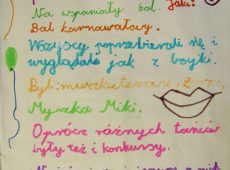 Na wspaniały bal. Jaki?
Bal karnawałowy.
Wszyscy poprzebierali się i
wyglądali jak z bajki.
Byli: muszkieterowie,
Myszka Miki.
Oprócz różnych tańców
były też i konkursy.